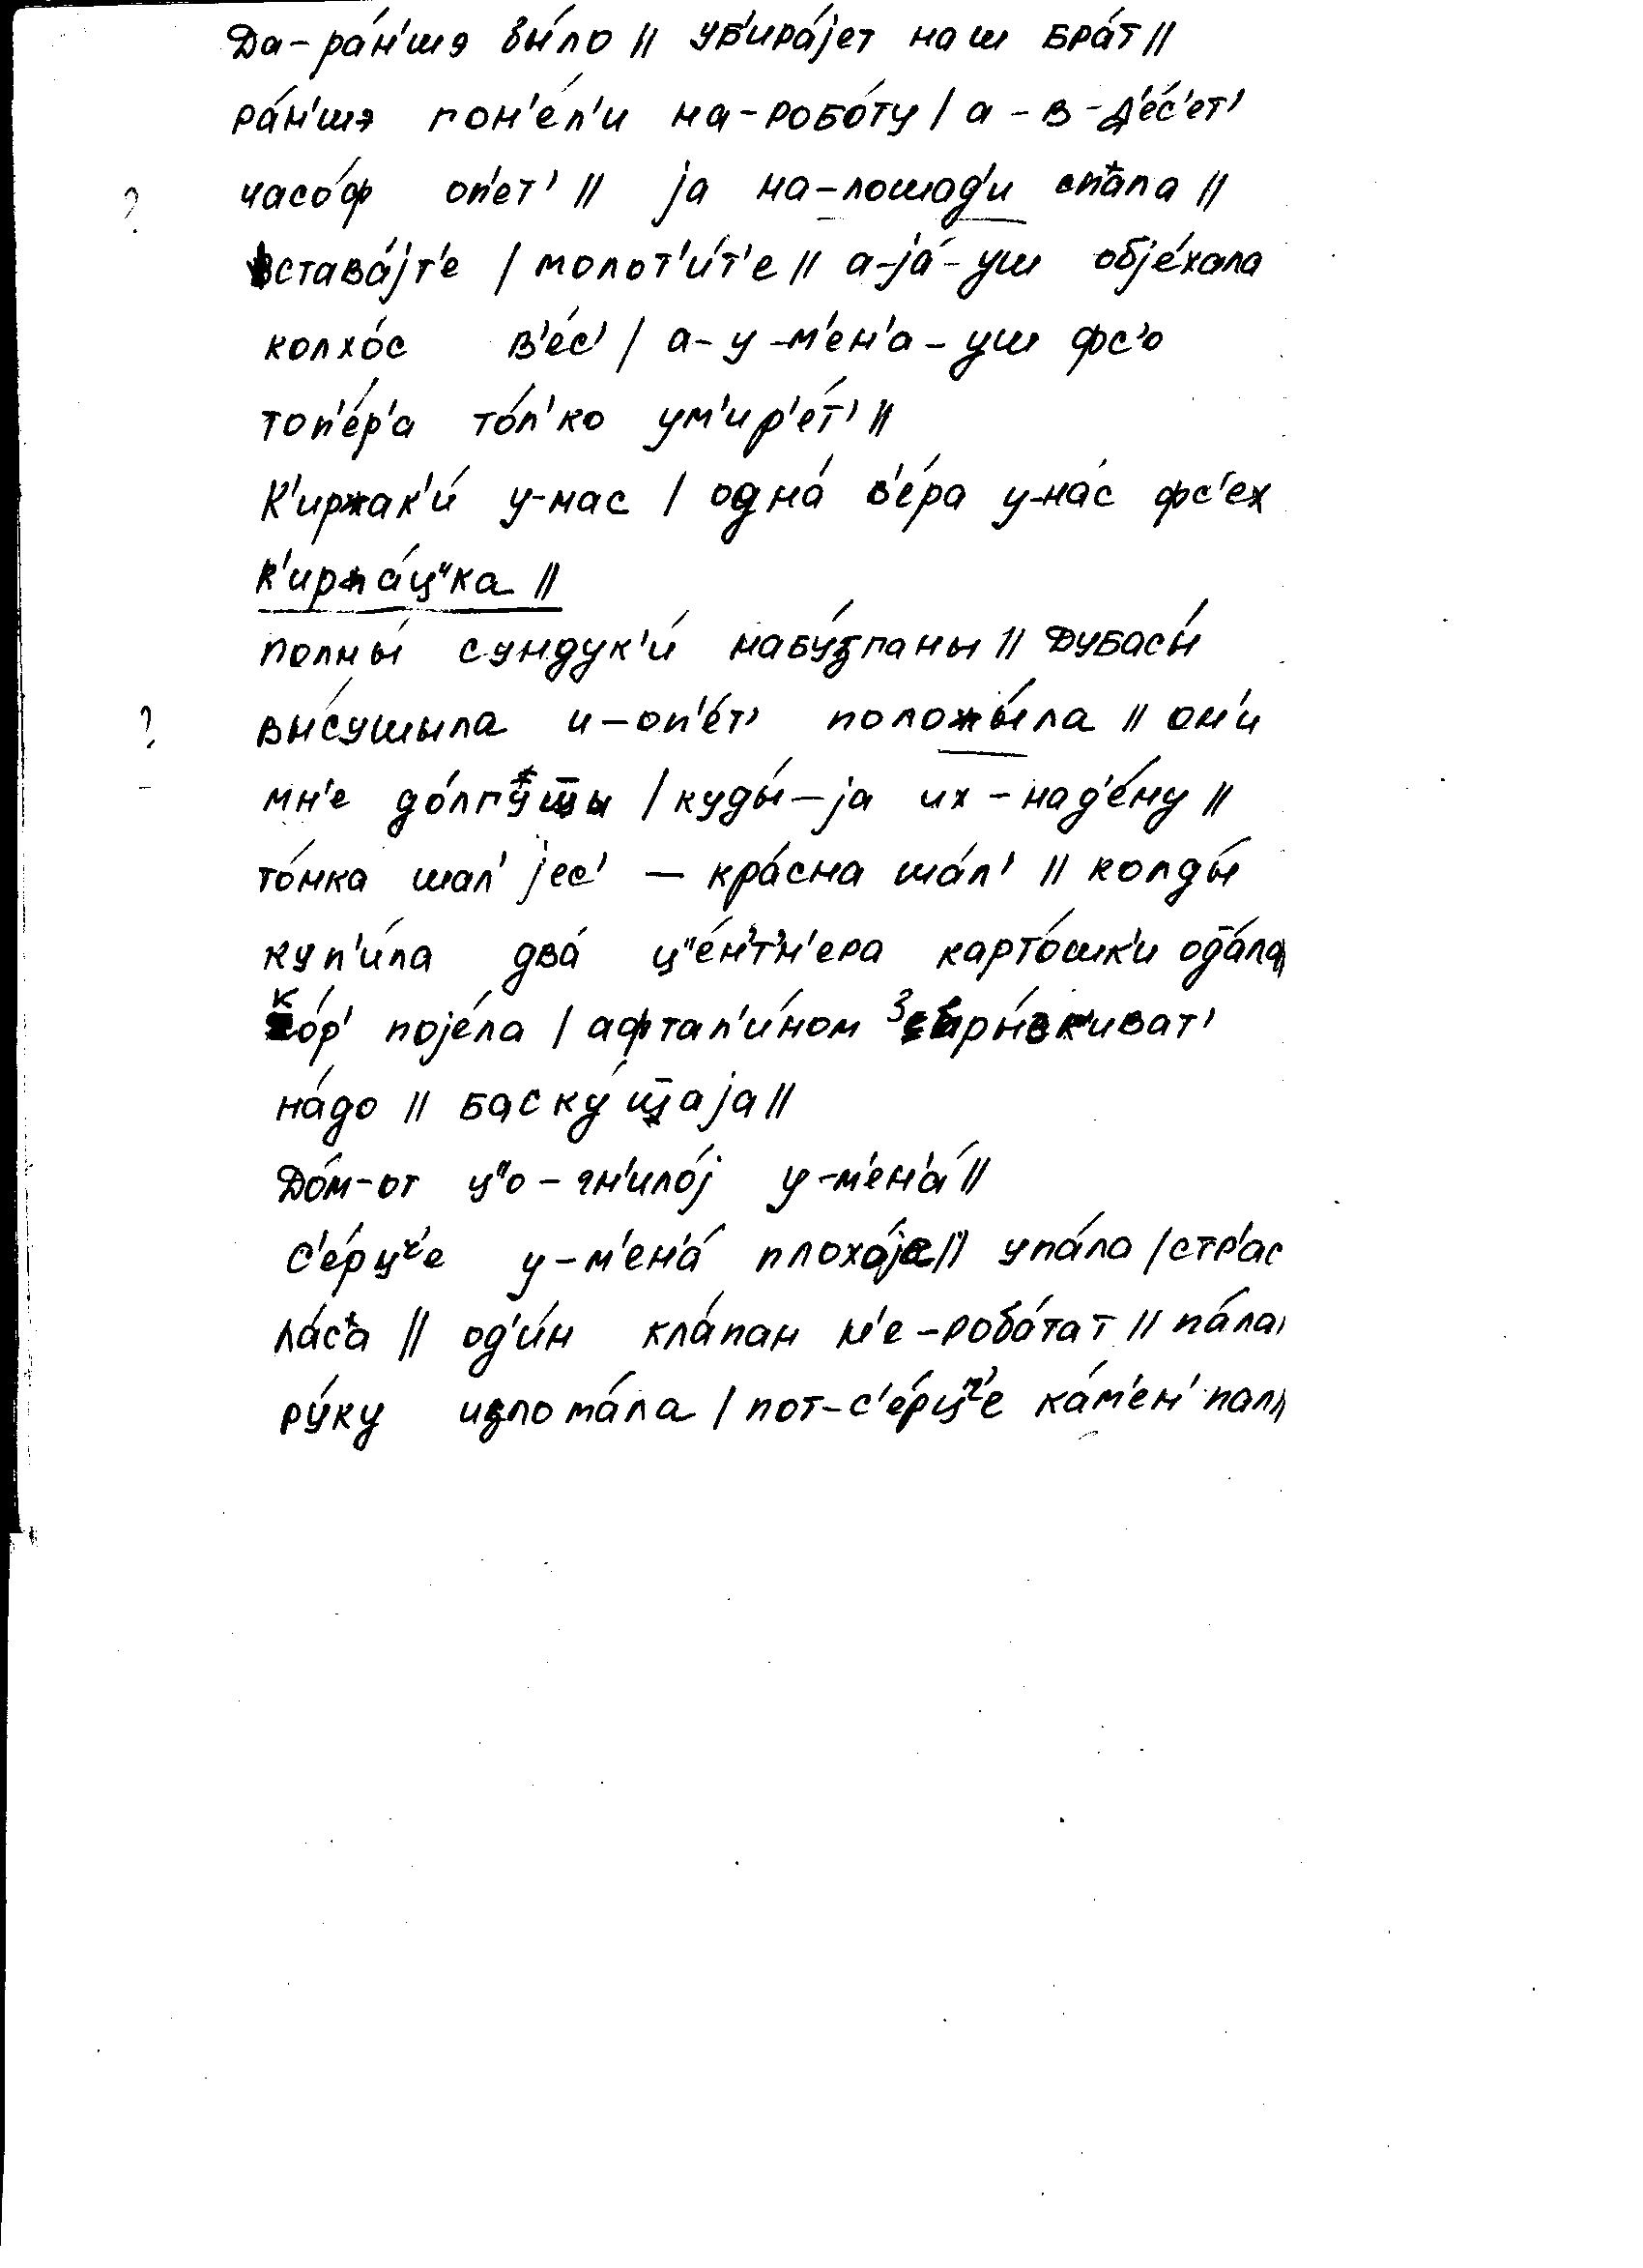 Да-ра́н'шэ бы́ло || уб'ира́јет наш бра́т ||
ра́н'шэ гон'е́л'и на-робо́ту | а-в-д'е́с'ет'
часо́ф оп'ет' || ја на-лошад'и спа́ла ||
?
встава́јт'е | молот'и́т'е || а-ја́-уш обје́хала
колхо́с в'е́с' | а-у-м'ен'а-уш фс'о
топ'е́р'а то́л'ко ум'ир'е́т' ||
К'иржак'и́ у-нас | одна́ в'е́ра у-на́с фс'ех
к'иржа́ц"ка ||
полны́ сундук'и́ набу́зганы || Дубасы́
вы́сушыла и-оп'е́т' положы́ла || он'и
?
мн'е до́лгушы | куды́-ја их-над'е́ну ||
то́нка шал' јес' — кра́сна ша́л' || колды́
куп'и́ла два́ ц"е́н'т'н'ера карто́шк'и ода́ла
ко́р' појела | афтал'и́ном збры́вк'иват'
на́до || баску́щаја ||
До́м-от ц"о-гн'ило́ј у-м'ен'а́ ||
с'е́рц"е у-м'ена́ плохо́је || упа́ла | стр'ас
ла́са || од'и́н кла́пан н'е-робо́тат || па́ла
ру́ку излома́ла | пот-с'е́рц"е ка́м'ен' пал